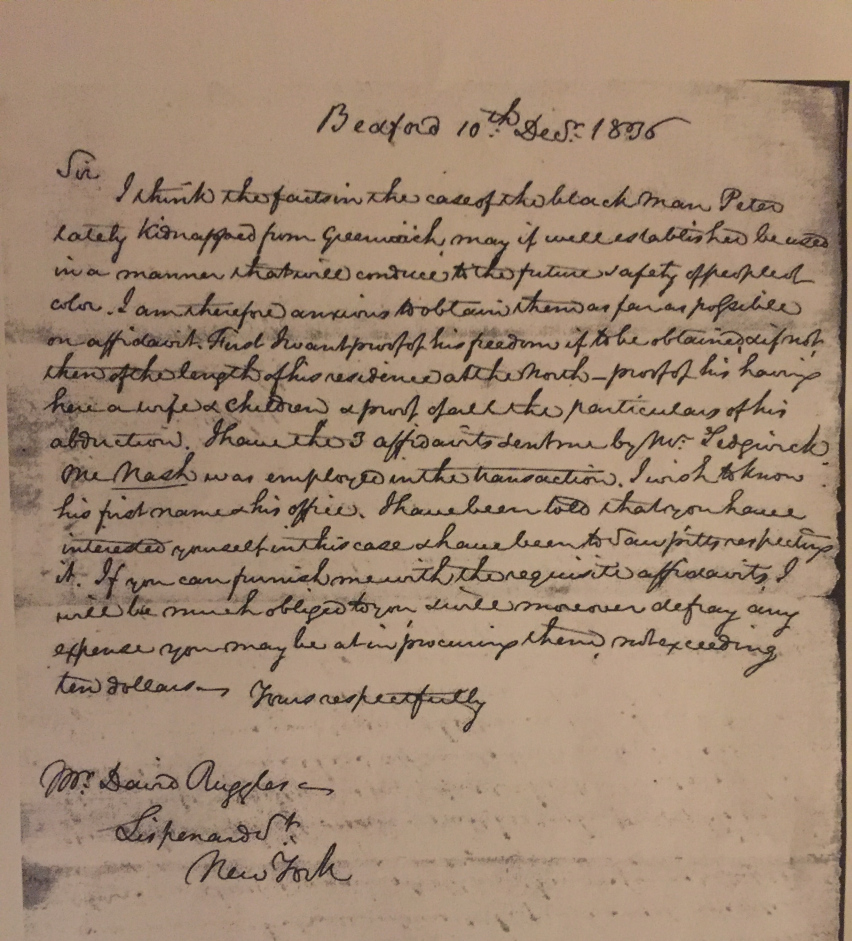 Bedford 10th Decr. 1836
Sir
I think the facts in the case of the black man Peter
lately kidnapped from Greenwich, may if well established be used
in a manner that will conduce to the future safety of people of
color. I am therefore anxious to obtain them as far as possible
on affidavit. First I want proof of his freedom if to be obtained, & if not,
then of the length of his residence at the North – proof of his having
here a wife & children & proof of all the particulars of his
abduction. I have the 3 affidavits sent me by Mr. Sedgwick
Mr Nash was employed in the transaction. I wish to know
his first name & his office. I have been told that you have
interested yourself in this case & have been to Sawpitts respecting
it. If you can furnish me with the requisite affidavits, I
will be much obliged to you & will moreover defray any
expense you may be at in procuring them, not exceeding
ten dollars — Yours respectfully
Mr. David Ruggles —
Lispenard St.
New York